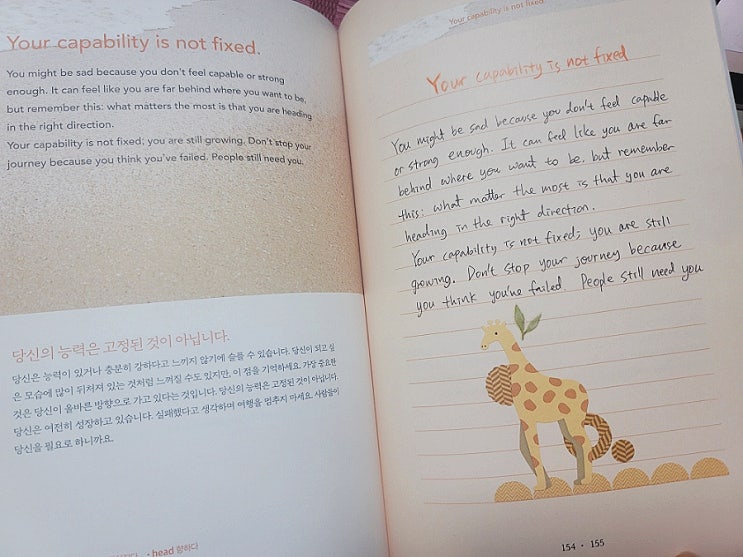 Your capability is not fixed.
You might be sad because you don't feel capable or strong
enough. It can feel like you are far behind where you want to be,
but remember this: what matters the most is that you are heading
in the right direction.
Your capability is not fixed; you are still growing. Don't stop your
journey because you think you've failed. People still need you.
당신의 능력은 고정된 것이 아닙니다.
당신은 능력이 있거나 충분히 강하다고 느끼지 않기에 슬플 수 있습니다. 당신이 되고 싶
은 모습에 많이 뒤처져 있는 것처럼 느껴질 수도 있지만, 이 점을 기억하세요. 가장 중요한
것은 당신이 올바른 방향으로 가고 있다는 것입니다. 당신의 능력은 고정된 것이 아닙니다.
당신은 여전히 성장하고 있습니다. 실패했다고 생각하며 여행을 멈추지 마세요. 사람들이
당신을 필요로 하니까요.
• head 향하다
Your capability is not fixed.
Your capability is not fixed
You might be sad because you don't feel capable
or strong enough. It can feel like you are far
behind where you want to be, but remember
this: what matter the most is that you are
heading in the right direction.
Your capability is not fixed; you are still
growing. Don't stop your journey because
you think you've failed. People still need you
154 • 155